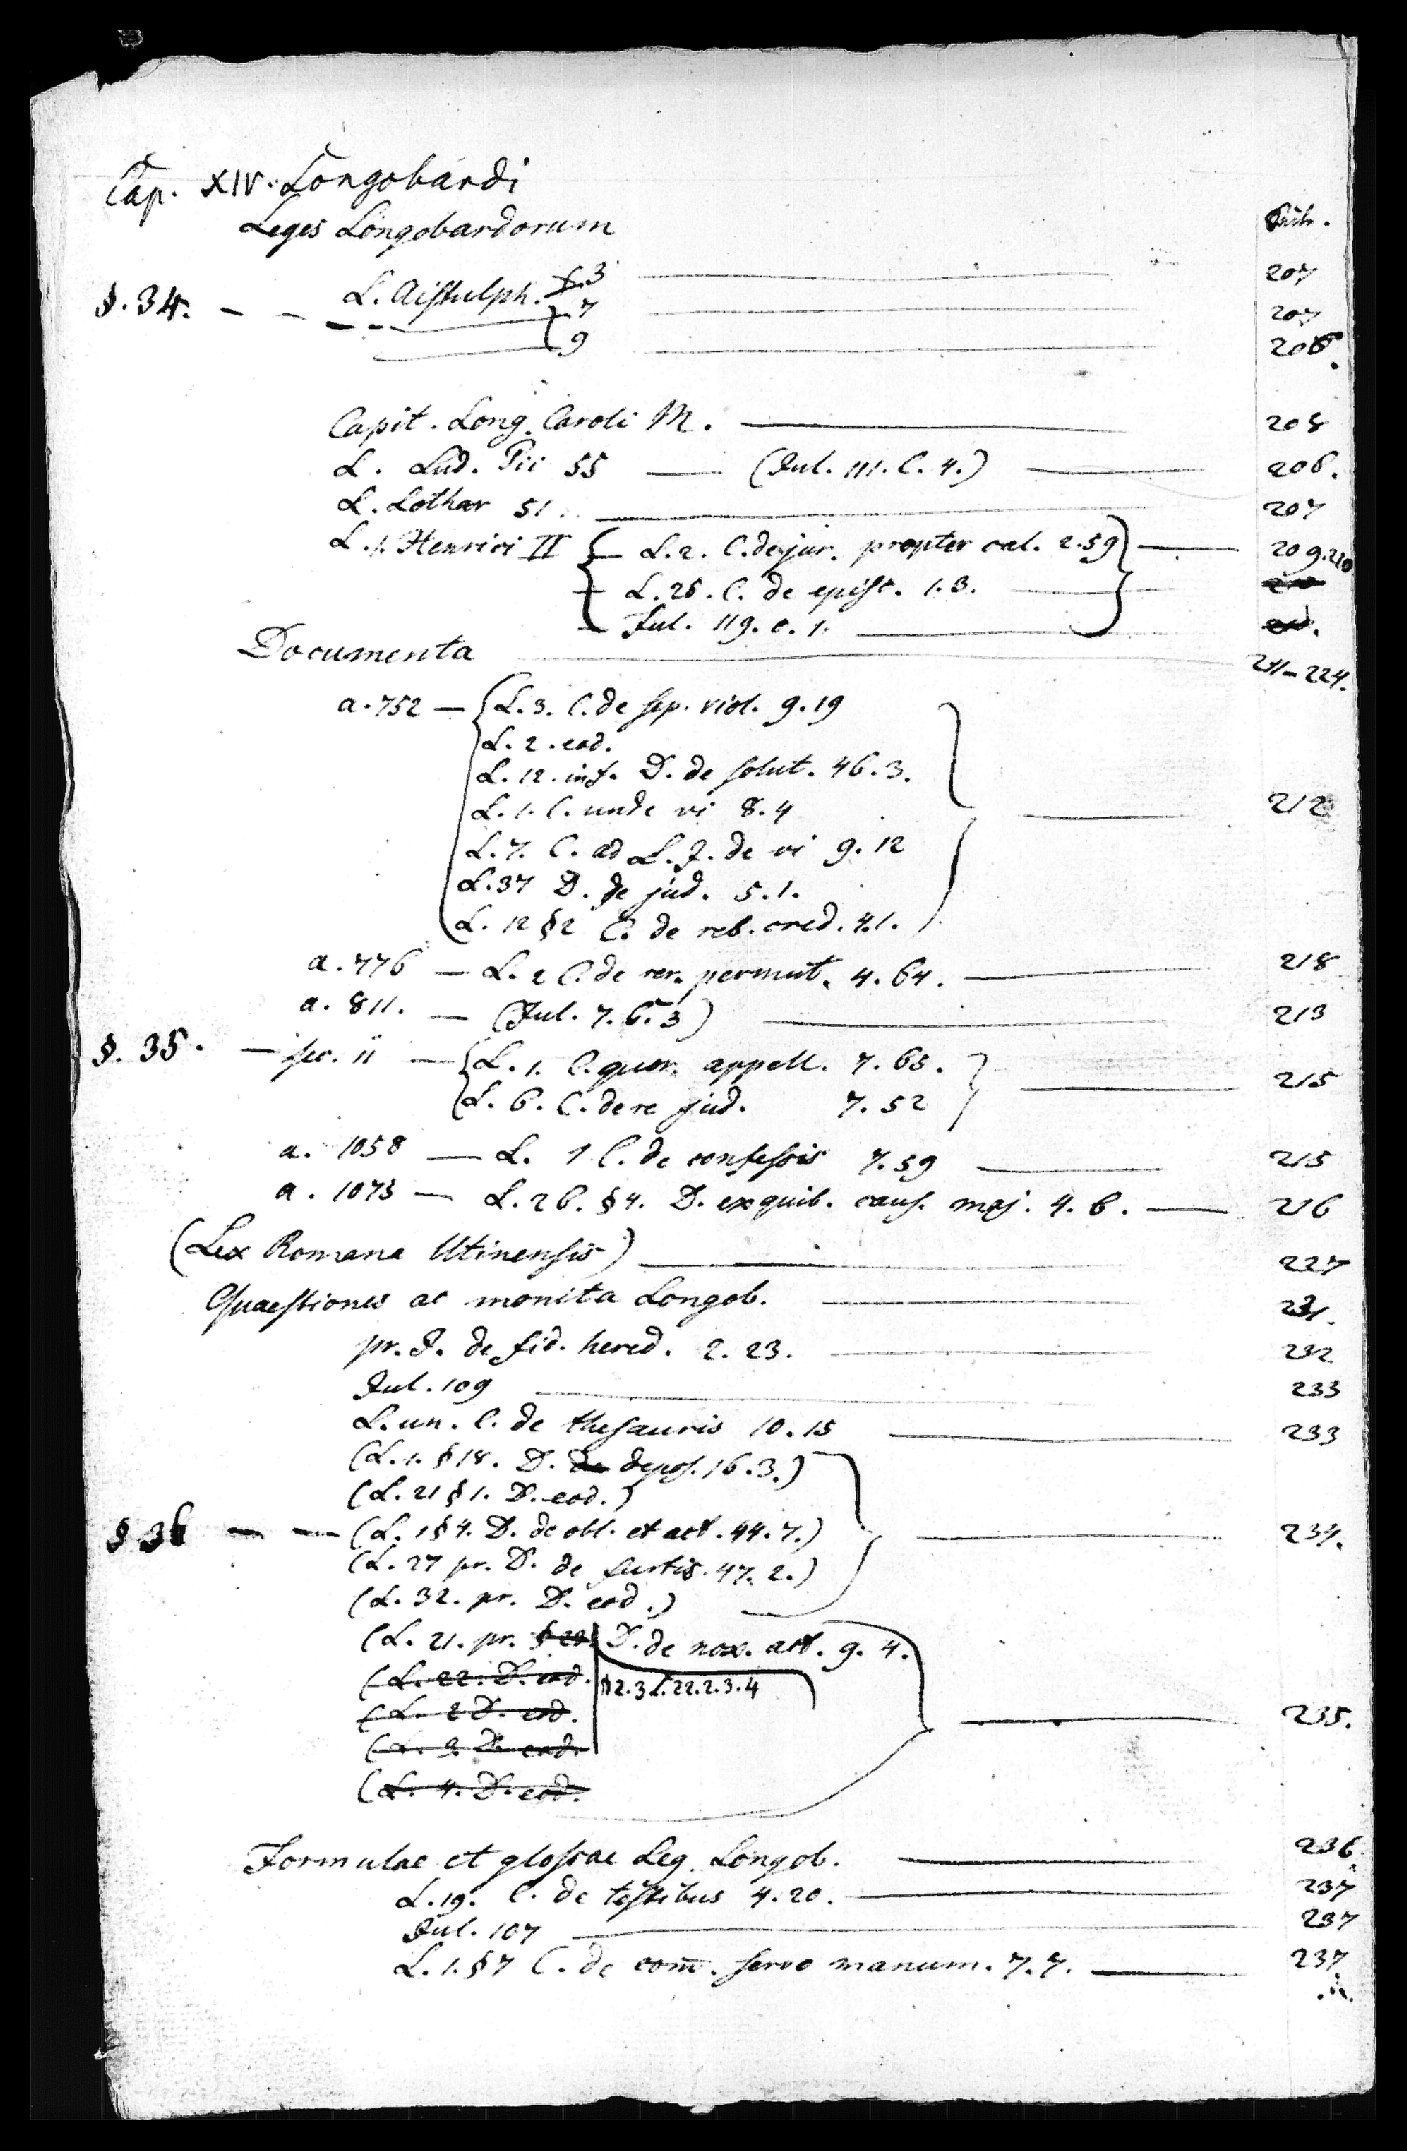 Cap. XIV. Longobardi
Leges Longobardorum
§. 34. — — — L. Aistulph. 3 — 207
7 — 207
9 — 206.
Capit. Long. Caroli M. — 208
L. Lud. Pii 55 — (Jul. 111. C. 4.) — 206.
L. Lothar 51. — 207
L. 1. Henrici II — L. 2. C. de jur. propter cal. 2.59 — 209.210
— L. 25. C. de episc. 1.3. —
— Jul. 119. c. 1. —
Documenta — 211–224.
a. 752 — L. 3. C. de sep. viol. 9.19
L. 2. eod.
L. 12. inf. D. de solut. 46.3.
L. 1. C. unde vi 8.4 — 212
L. 7. C. ad L. J. de vi 9.12
L. 37 D. de jud. 5.1.
L. 12 §2 C. de reb. cred. 4.1.
a. 776 — L. 2 C. de rer. permut. 4.64. — 218
a. 811. — (Jul. 7. 6. 3) — 213
§. 35. — sec. 11 — L. 1. C. quor. appell. 7.65. — 215
L. 6. C. de re jud. 7.52
a. 1058 — L. 1 C. de confessis 7.59 — 215
a. 1075 — L. 26. §4. D. ex quib. caus. maj. 4.6. — 216
(Lex Romana Utinensis) — 227
Quaestiones ac monita Longob. — 231.
pr. J. de fid. hered. 2.23. — 232
Jul. 109 — 233
L. un. C. de thesauris 10.15 — 233
(L. 1. §18. D. de depos. 16.3.)
(L. 21 §1. D. eod.)
§ 36 — — (L. 1 §4. D. de obl. et act. 44.7.) — 234.
(L. 27 pr. D. de furtis. 47.2.)
(L. 32. pr. D. eod.)
(L. 21. pr. D. de nox. act. 9.4.
(L. 22. D. eod. §2.3 L. 22.2.3.4
(L. 2 D. eod. — 235.
(L. 3. D. eod.
(L. 4. D. eod.
Formulae et glossae Leg. Longob. — 236.
L. 19. C. de testibus 4.20. — 237
Jul. 107 — 237
L. 1. §7 C. de com̅. servo manum. 7.7. — 237